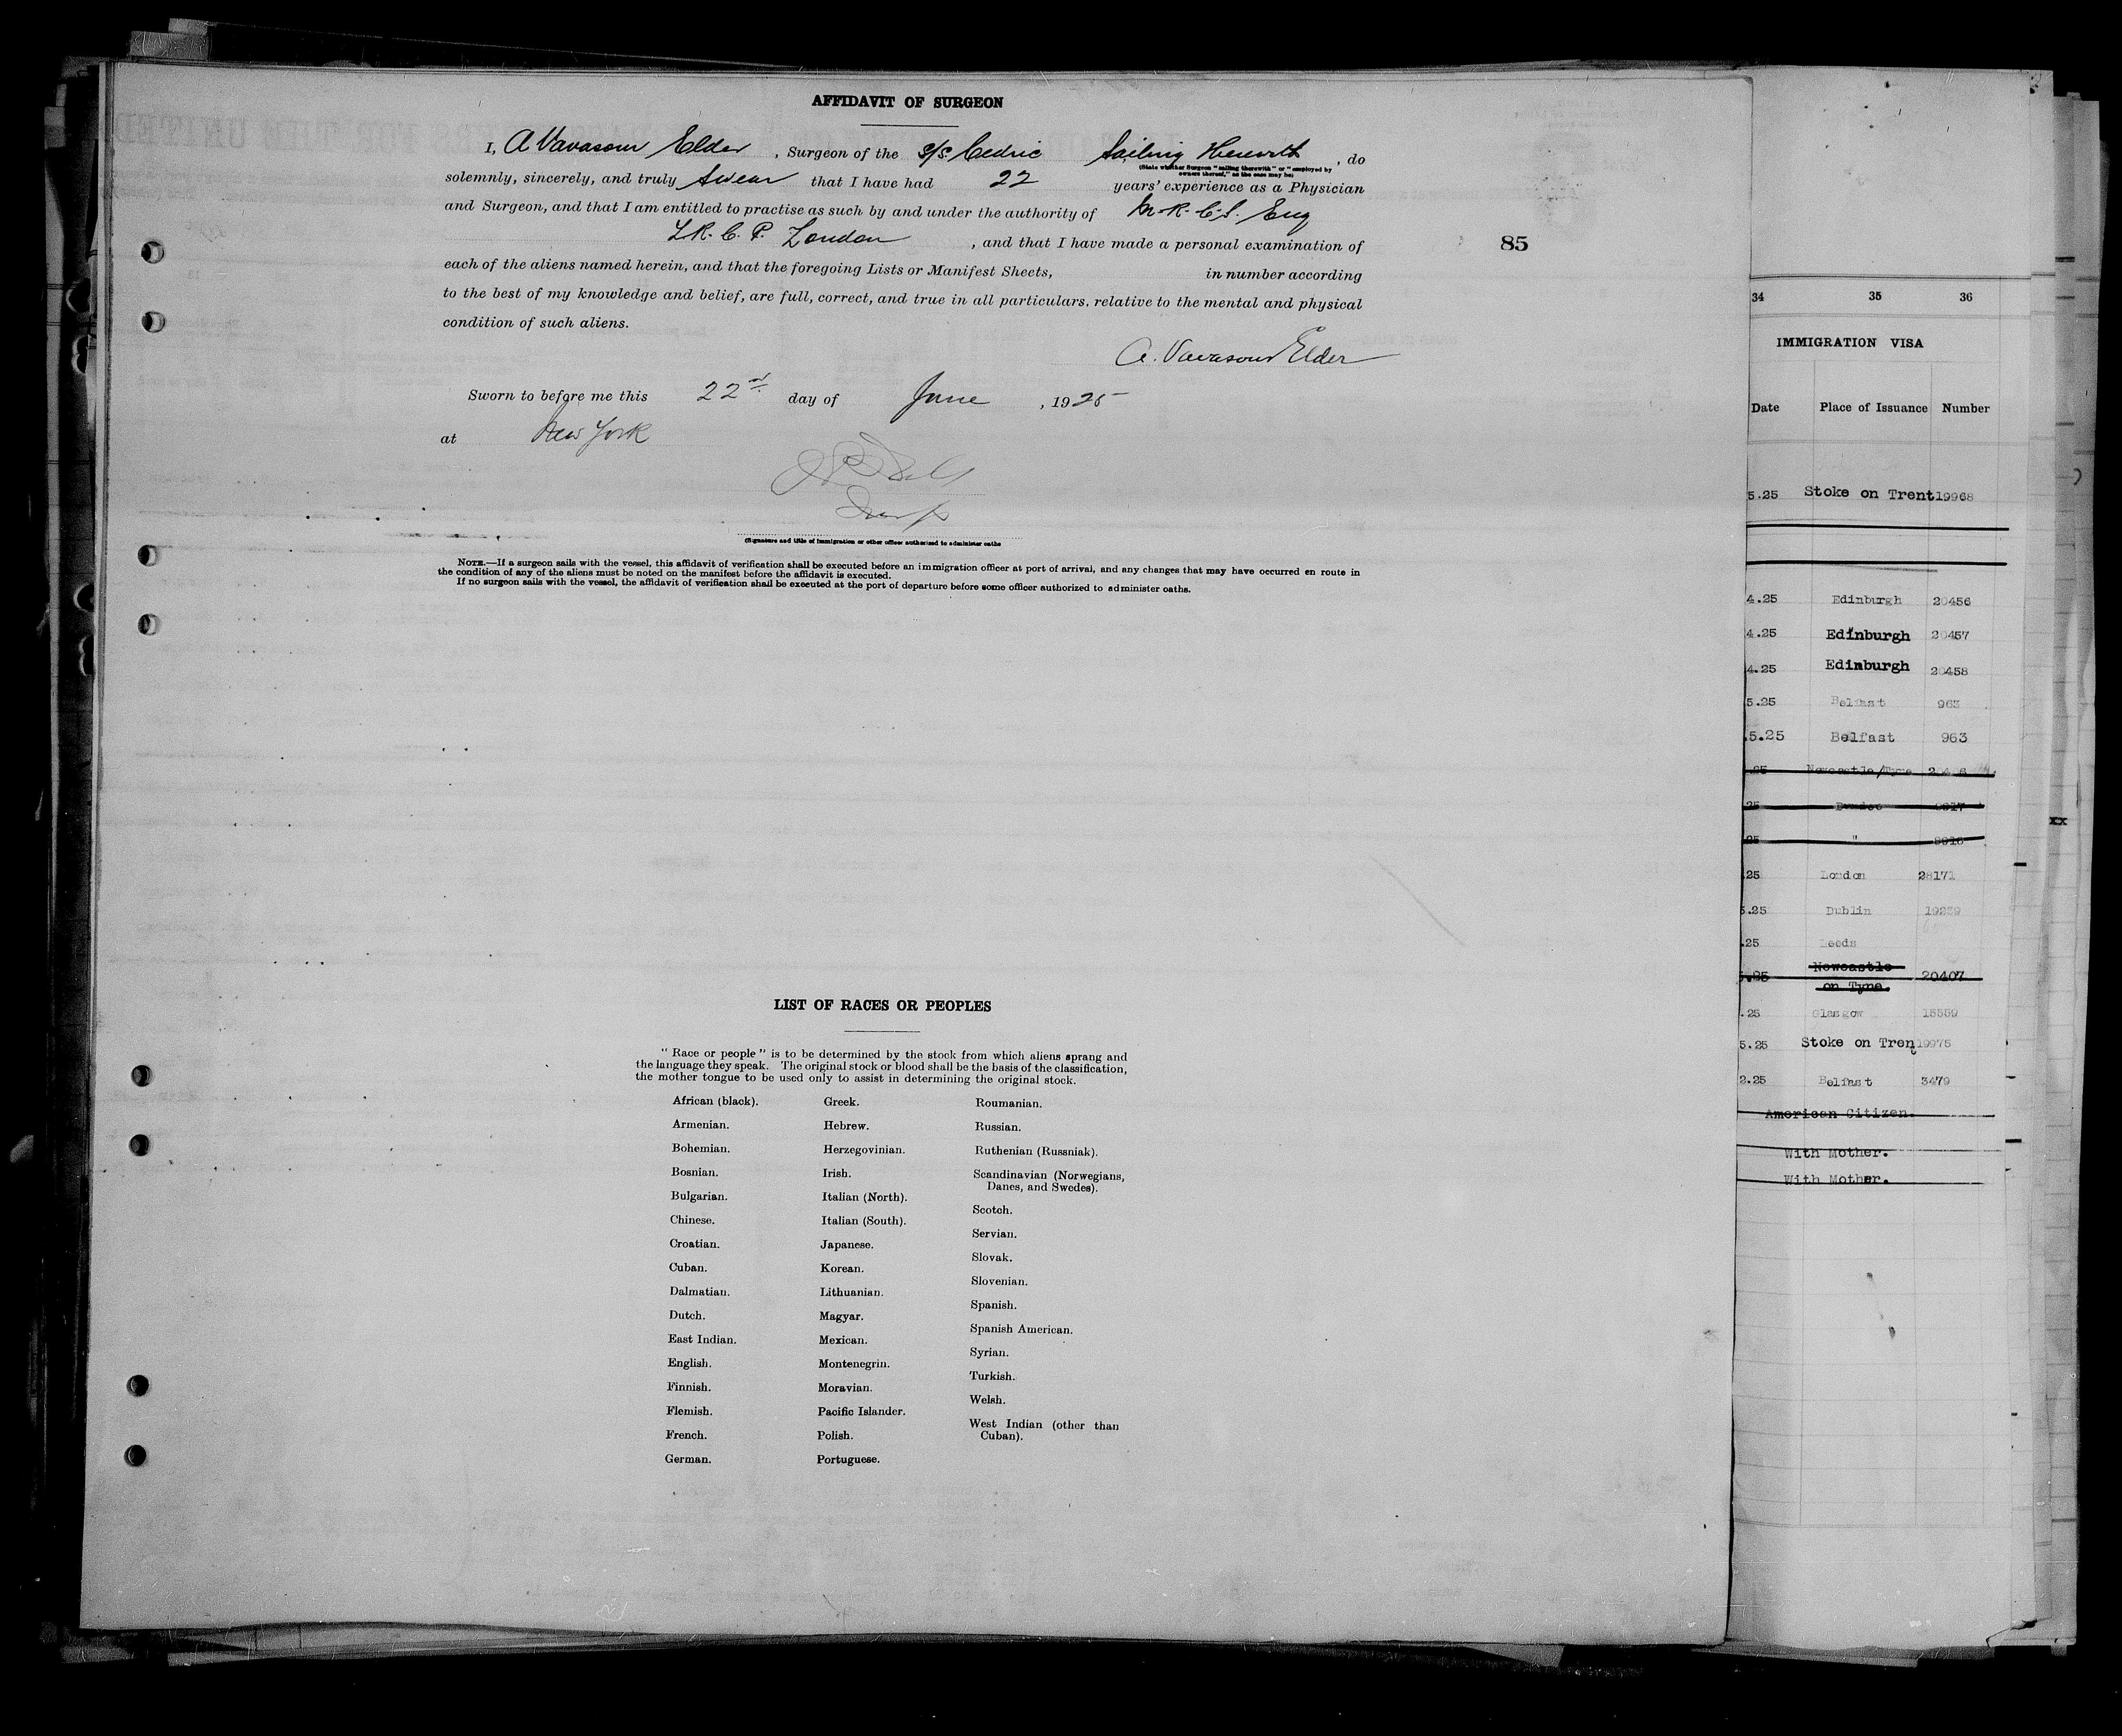 AFFIDAVIT OF SURGEON
I, A Vavasour Elder, Surgeon of the S/S. Cedric Sailing Herewith, do
(State whether Surgeon "sailing therewith" or "employed by
owners thereof," as the case may be)
solemnly, sincerely, and truly swear that I have had 22 years' experience as a Physician
and Surgeon, and that I am entitled to practise as such by and under the authority of M.R.C.S. Eng
L.R.C.P. London, and that I have made a personal examination of
85
each of the aliens named herein, and that the foregoing Lists or Manifest Sheets, in number according
to the best of my knowledge and belief, are full, correct, and true in all particulars, relative to the mental and physical
condition of such aliens.
A. Vavasour Elder
Sworn to before me this 22nd day of June, 1925
at New York
(Signature and title of immigration or other officer authorized to administer oaths
NOTE.—If a surgeon sails with the vessel, this affidavit of verification shall be executed before an immigration officer at port of arrival, and any changes that may have occurred en route in
the condition of any of the aliens must be noted on the manifest before the affidavit is executed.
If no surgeon sails with the vessel, the affidavit of verification shall be executed at the port of departure before some officer authorized to administer oaths.
LIST OF RACES OR PEOPLES
"Race or people" is to be determined by the stock from which aliens sprang and
the language they speak. The original stock or blood shall be the basis of the classification,
the mother tongue to be used only to assist in determining the original stock.
African (black).
Armenian.
Bohemian.
Bosnian.
Bulgarian.
Chinese.
Croatian.
Cuban.
Dalmatian.
Dutch.
East Indian.
English.
Finnish.
Flemish.
French.
German.
Greek.
Hebrew.
Herzegovinian.
Irish.
Italian (North).
Italian (South).
Japanese.
Korean.
Lithuanian.
Magyar.
Mexican.
Montenegrin.
Moravian.
Pacific Islander.
Polish.
Portuguese.
Roumanian.
Russian.
Ruthenian (Russniak).
Scandinavian (Norwegians,
Danes, and Swedes).
Scotch.
Servian.
Slovak.
Slovenian.
Spanish.
Spanish American.
Syrian.
Turkish.
Welsh.
West Indian (other than
Cuban).
34 35 36
IMMIGRATION VISA
Date Place of Issuance Number
5.25 Stoke on Trent 19968
4.25 Edinburgh 20456
4.25 Edinburgh 20457
4.25 Edinburgh 20458
5.25 Belfast 963
.5.25 Belfast 963
.25 Newcastle/Tyne
25 Dundee
.25 "
.25 London 28171
5.25 Dublin 19239
.25 Leeds
5.25 Newcastle
on Tyne. 20407
.25 Glasgow 15559
5.25 Stoke on Trent 19975
2.25 Belfast 3479
American Citizen.
With Mother.
With Mother.
xx